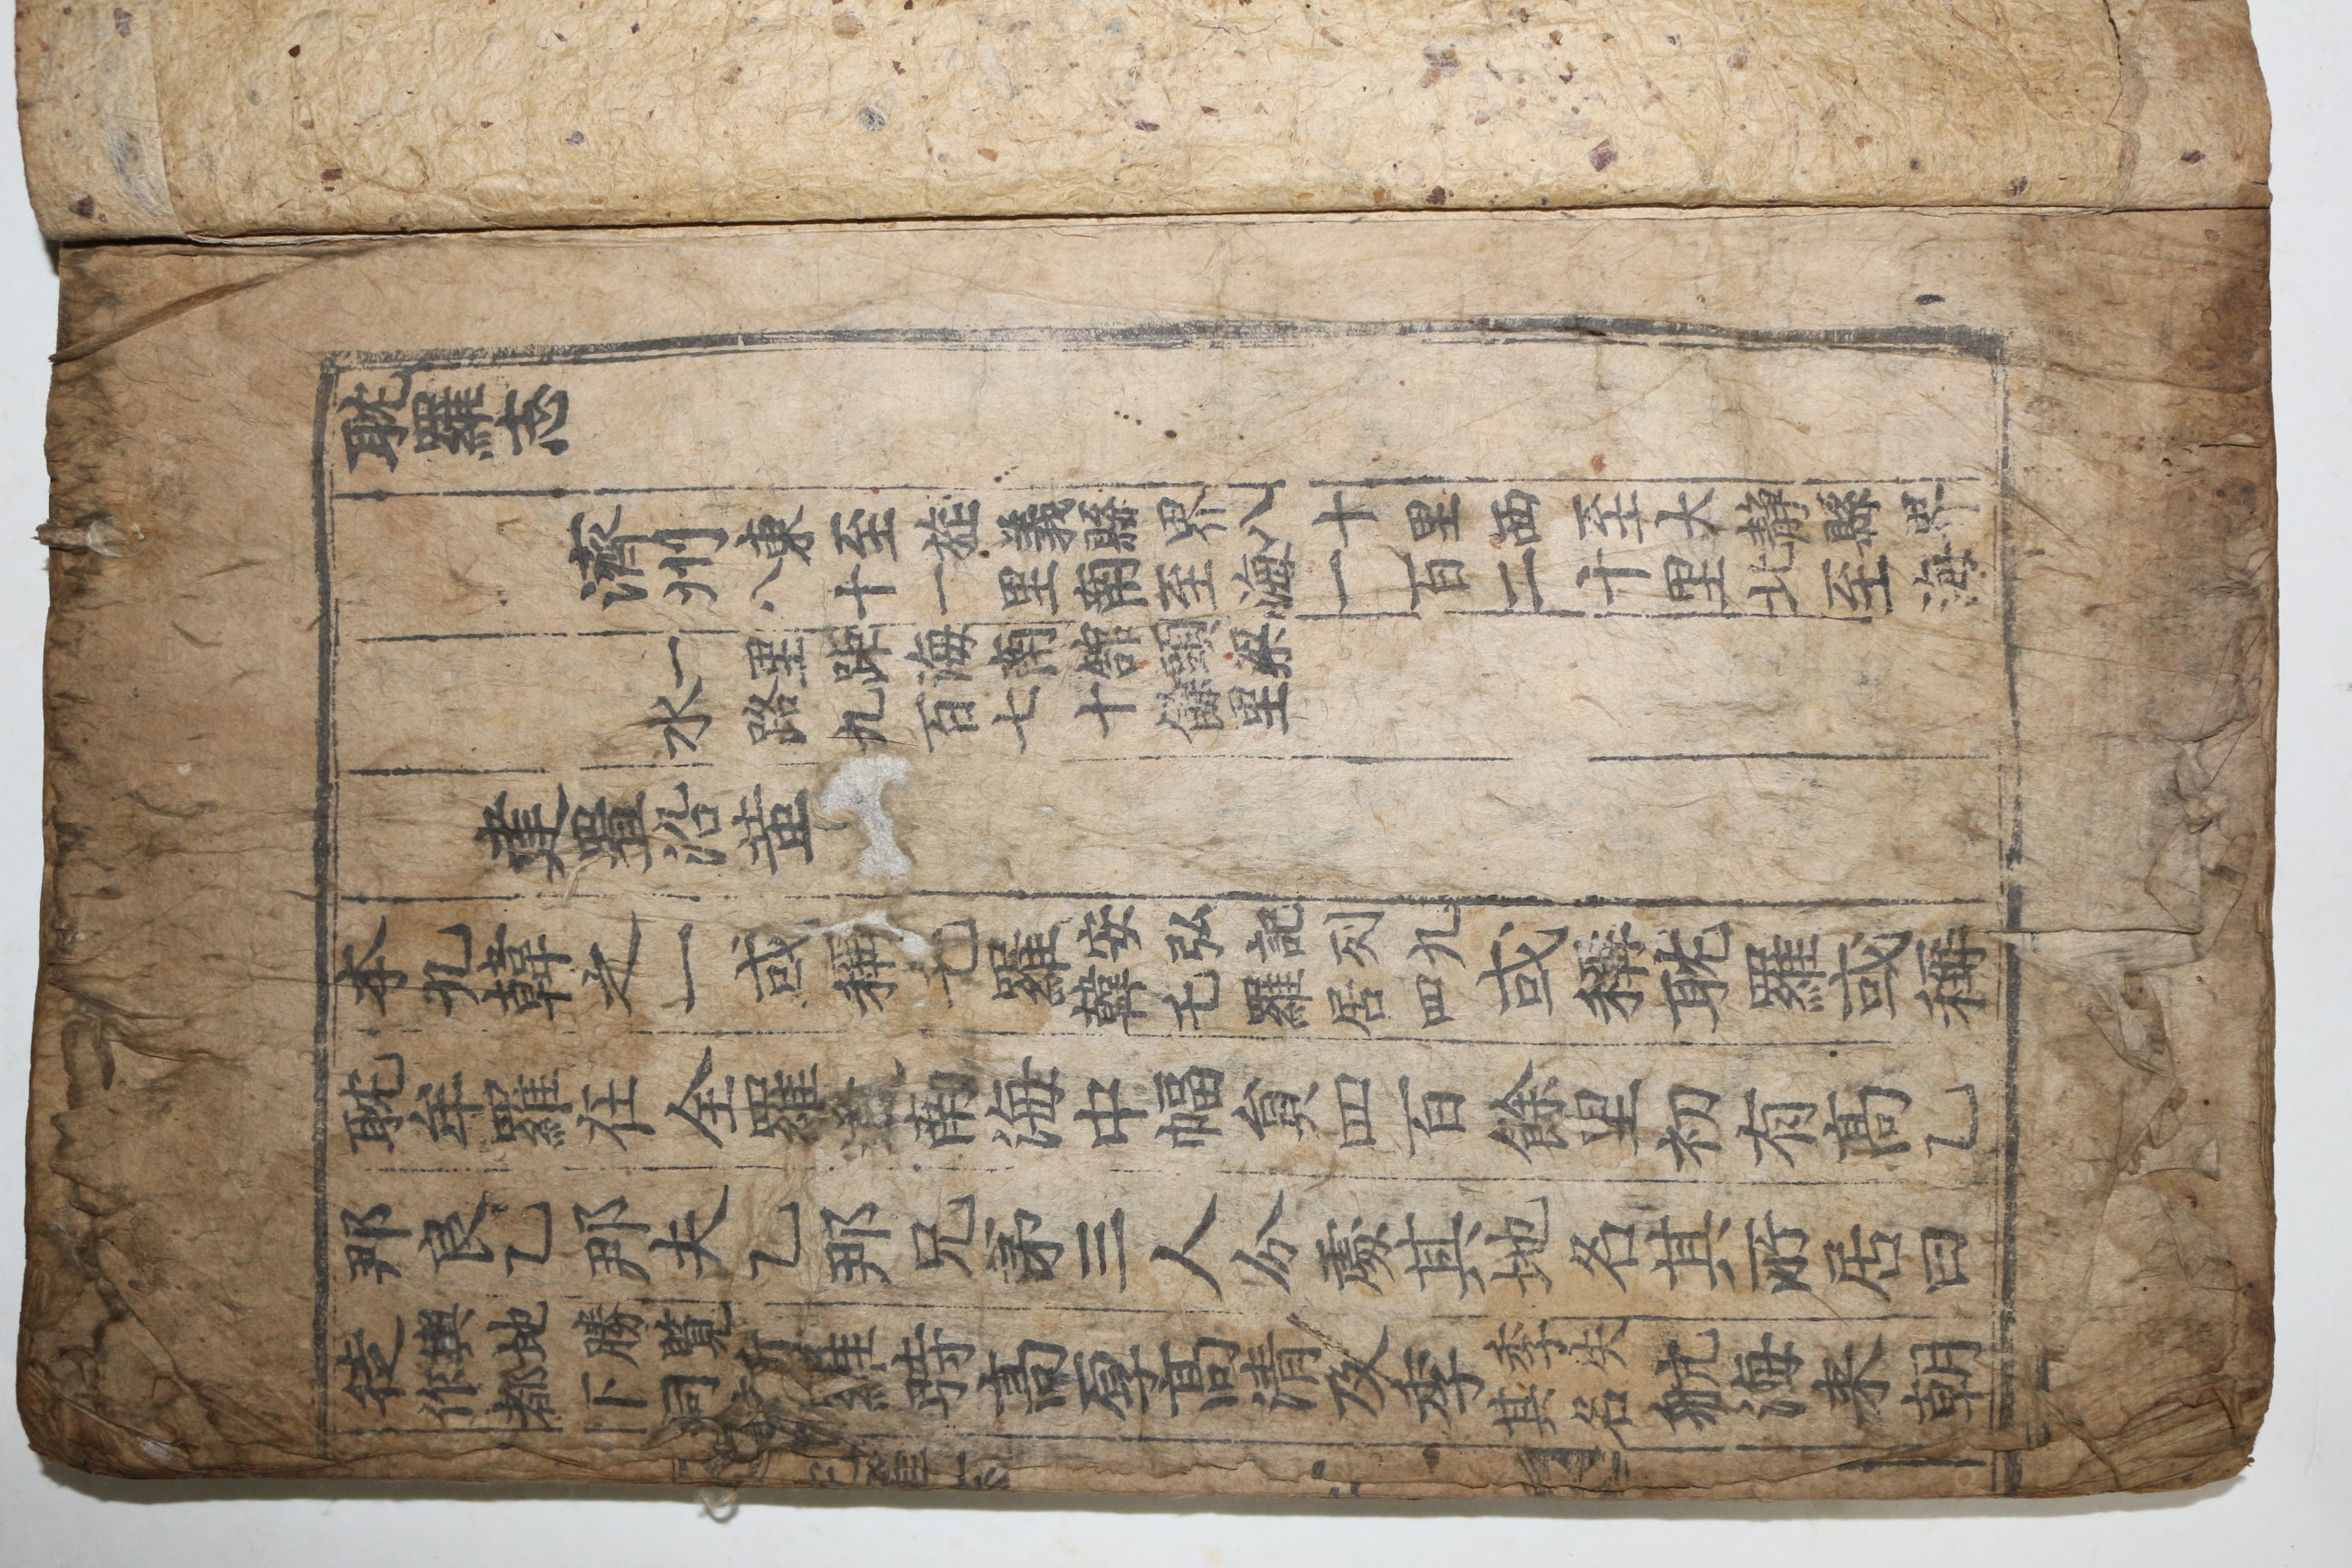 耽羅志
濟州東至㫌義縣界八十里西至大静縣界
八十一里南至海一百二十里北至海
一里距海南舘頭梁
水路九百七十餘里
建置沿革
本九韓之一或稱乇羅安弘記列九韓乇羅居四或稱耽羅或稱
耽牟羅在全羅道南海中幅貟四百餘里初有髙乙
那良乙那夫乙那兄弟三人分處其地名其所居曰
徒輿地勝覧作都下同新羅時髙厚髙清及季季失其名航海来朝